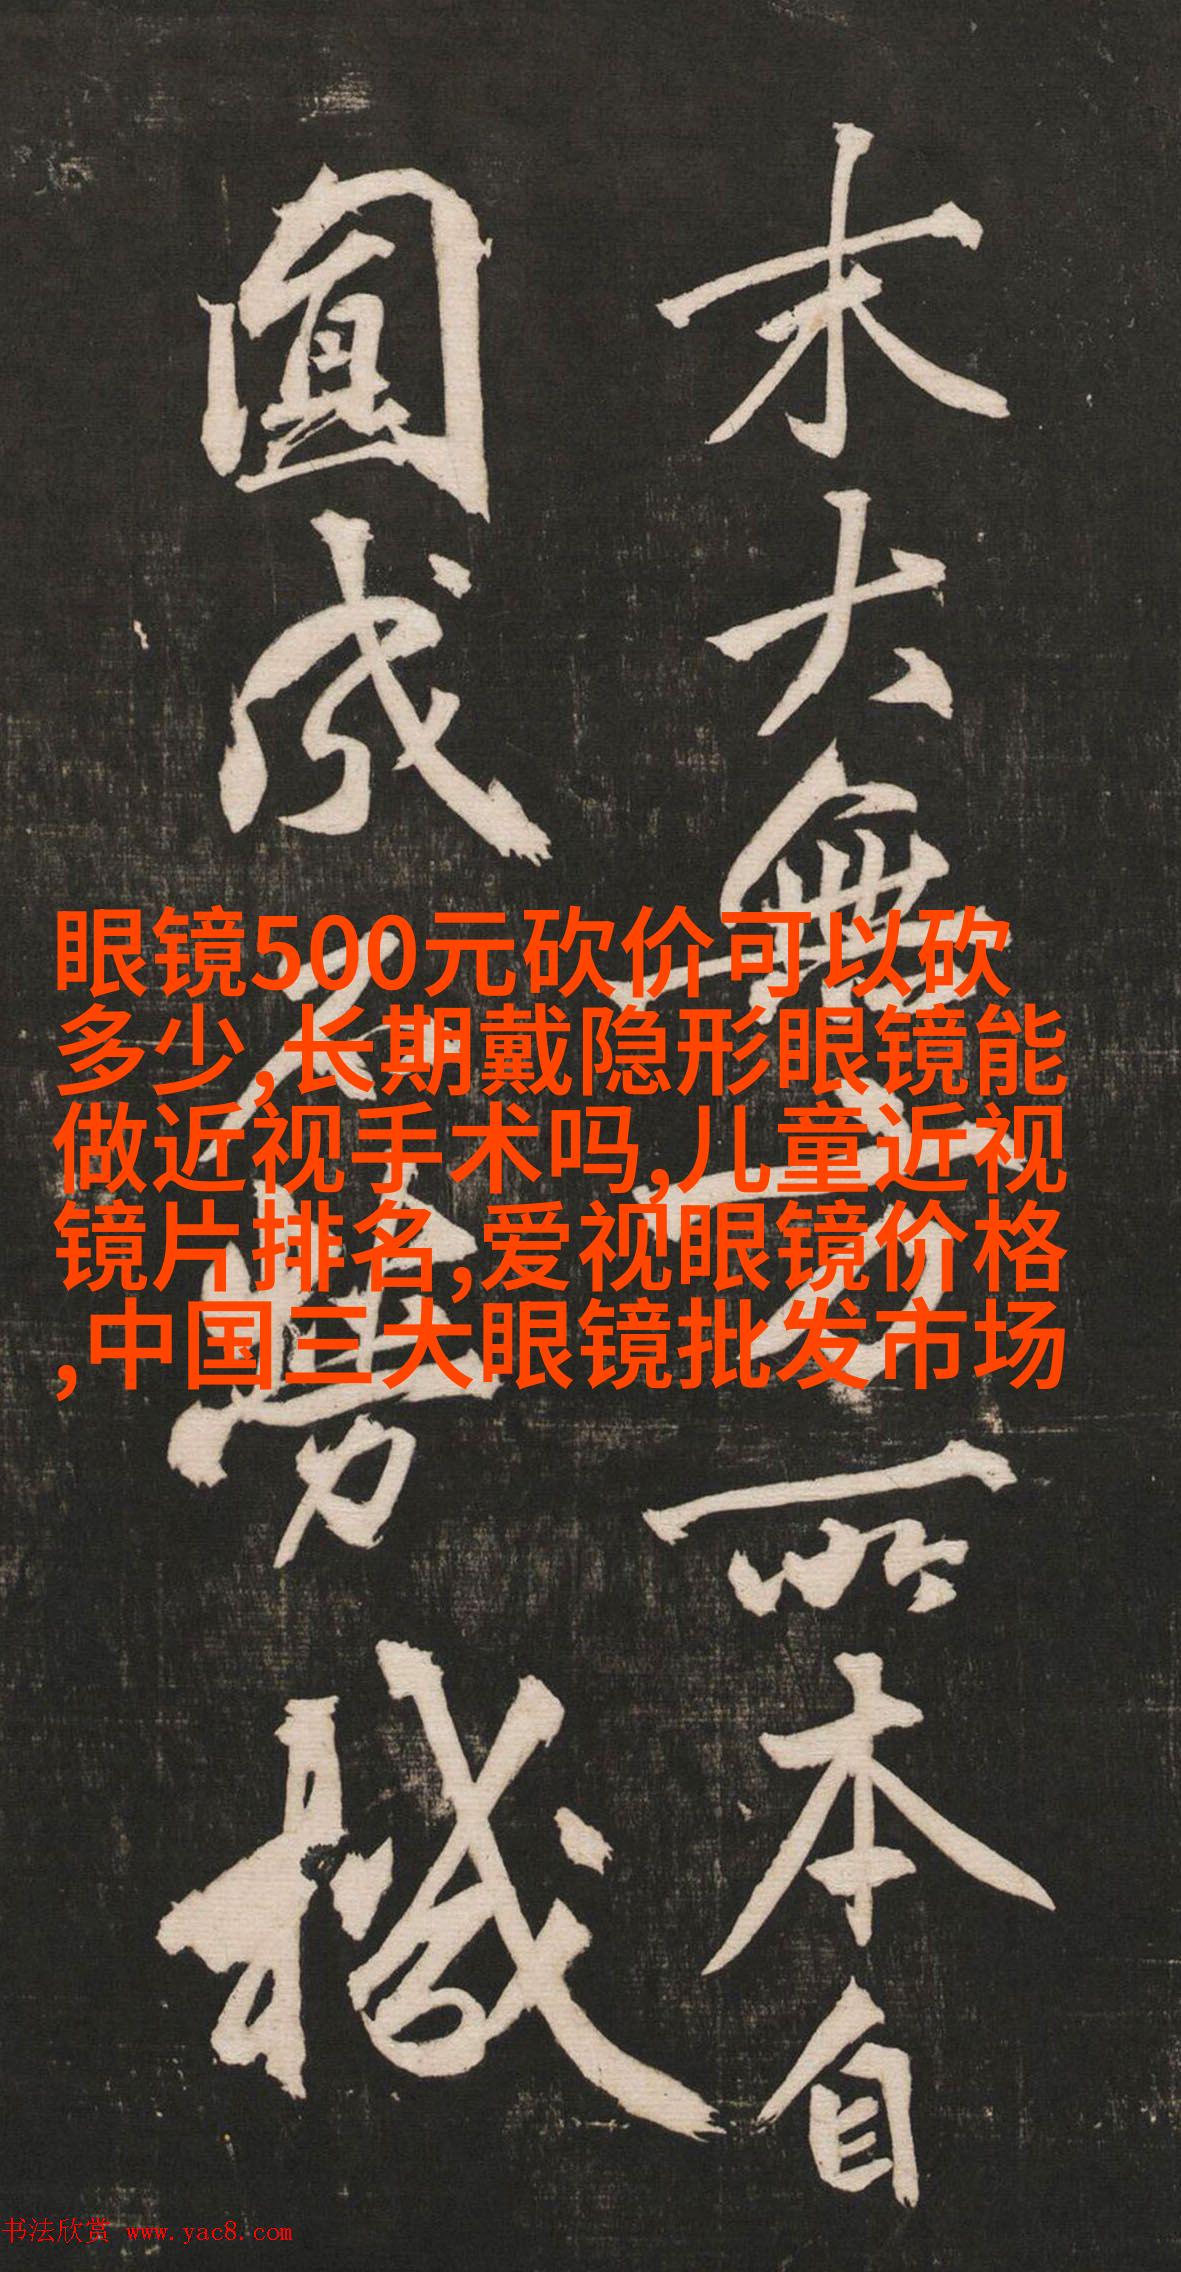 末大無方所本自
圓成不勞機
眼镜500元砍价可以砍
多少,长期戴隐形眼镜能
做近视手术吗,儿童近视
镜片排名,爱视眼镜价格
,中国三大眼镜批发市场
书法欣赏 www.yac8.com